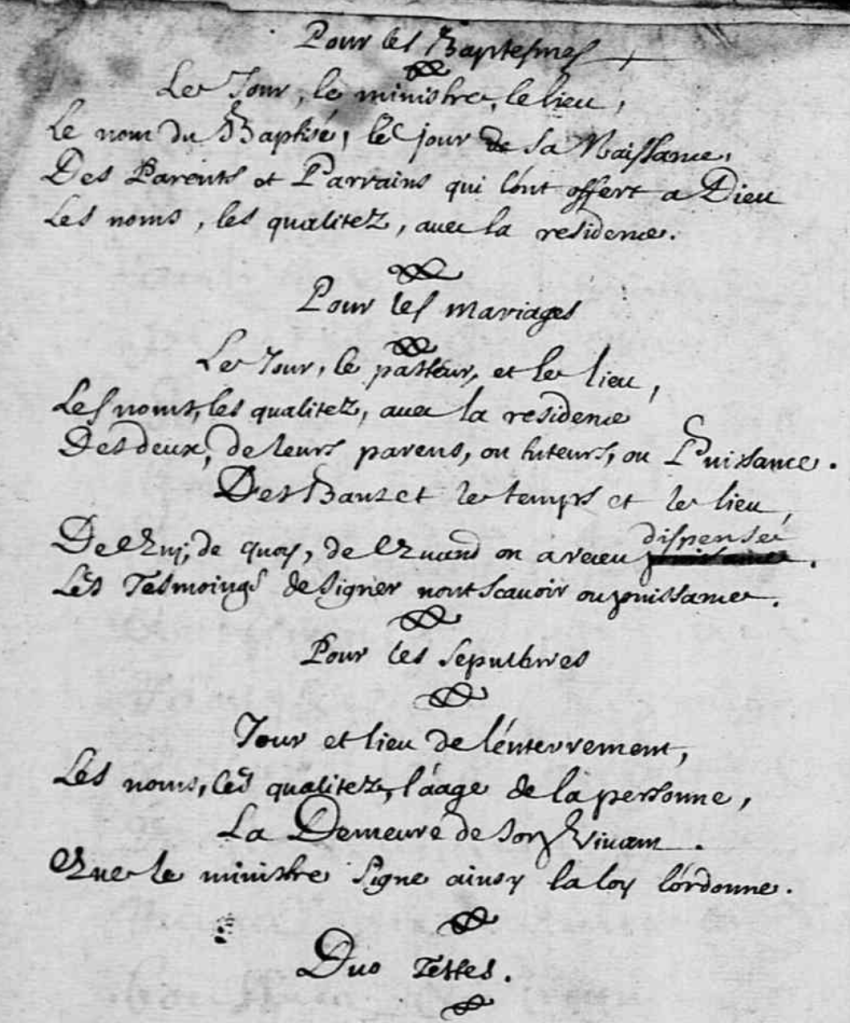 Pour les Baptesmes
Le Jour, le ministre, le lieu,
Le nom du Baptisé, le jour de sa Naissance,
Des Parents et Parrains qui l'ont offert a Dieu
Les noms, les qualitez, avec la residence.
Pour les mariages
Le Jour, le pasteur, et le lieu,
Les noms, les qualitez, avec la residence
Des deux, de leurs parens, ou tuteurs, ou Puissance.
Des Bans et le temps et le lieu,
De Qui, de quoy, de Quand on a receu dispense.
Les Tesmoings de signer n'ont scavoir ou jouissance.
Pour les sepultures
Jour et lieu de l'enterrement,
Les noms, les qualitez, l'áage de la personne,
La Demeure de son Vivam.
Que le ministre signe ainsy la loy l'ordonne.
Duo Testes.